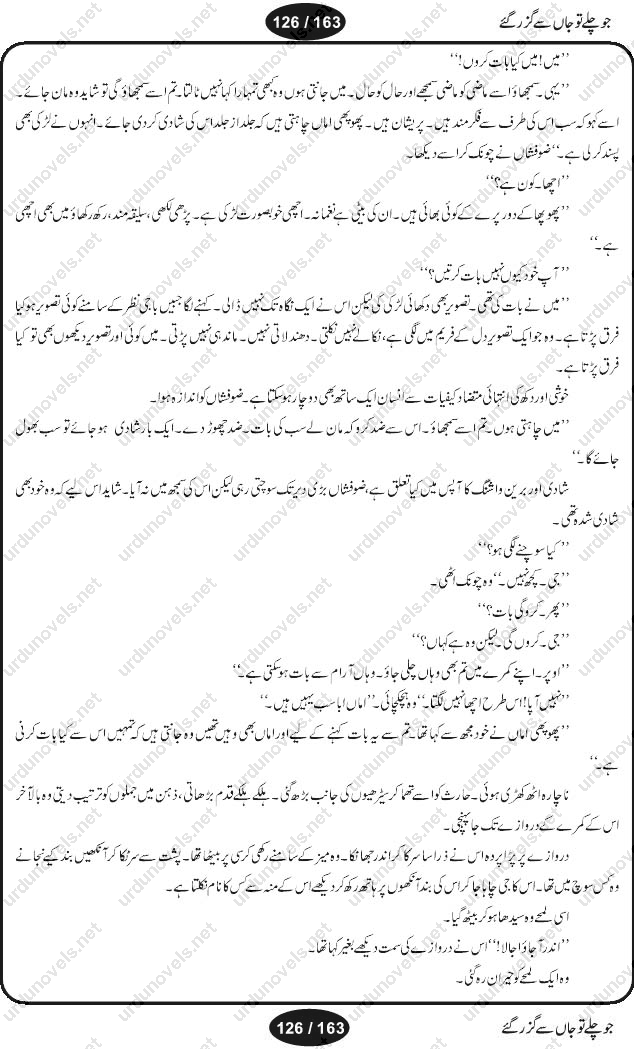 جو چلے تو جاں سے گزر گئے
126 / 163
’’میں! میں کیا بات کروں!‘‘
’’یہی۔ سمجھاؤ اسے ماضی کو ماضی سمجھے اور حال کو حال۔ میں جانتی ہوں وہ کبھی تمہارا کہا نہیں ٹالتا۔ تم اسے سمجھاؤ گی تو شاید وہ مان جائے۔
اسے کہو کہ سب اس کی طرف سے فکرمند ہیں۔ پریشان ہیں۔ پھوپھی اماں چاہتی ہیں کہ جلد از جلد اس کی شادی کردی جائے۔ انہوں نے لڑکی بھی
پسند کر لی ہے۔‘‘ ضوفشاں نے چونک کر اسے دیکھا۔
’’اچھا۔ کون ہے؟‘‘
’’پھوپھا کے دور پرے کے کوئی بھائی ہیں۔ ان کی بیٹی ہے نغمانہ۔ اچھی خوبصورت لڑکی ہے۔ پڑھی لکھی، سلیقہ مند، رکھ رکھاؤ میں بھی اچھی
ہے۔‘‘
’’آپ خود کیوں نہیں بات کرتیں؟‘‘
’’میں نے بات کی تھی۔ تصویر بھی دکھائی لڑکی کی لیکن اس نے ایک نگاہ تک نہیں ڈالی۔ کہنے لگا مہ جبیں باجی نظر کے سامنے کوئی تصویر ہو کیا
فرق پڑتا ہے۔ وہ جو ایک تصویر دل کے فریم میں لگی ہے، نکالے نہیں نکلتی۔ دھندلاتی نہیں۔ ماند ہی نہیں پڑتی۔ میں کوئی اور تصویر دیکھوں بھی تو کیا
فرق پڑتا ہے۔
خوشی اور دکھ کی انتہائی متضاد کیفیات سے انسان ایک ساتھ بھی دوچار ہو سکتا ہے۔ ضوفشاں کو اندازہ ہوا۔
’’میں چاہتی ہوں۔ تم اسے سمجھاؤ۔ اس سے ضد کرو کہ مان لے سب کی بات۔ ضد چھوڑ دے۔ ایک بار شادی ہو جائے تو سب بھول
جائے گا۔‘‘
شادی اور برین واشنگ کا آپس میں کیا تعلق ہے، ضوفشاں بڑی دیر تک سوچتی رہی لیکن اس کی سمجھ میں نہ آیا۔ شاید اس لیے کہ وہ خود بھی
شادی شدہ تھی۔
’’کیا سوچنے لگی ہو؟‘‘
’’جی۔ کچھ نہیں۔‘‘ وہ چونک اٹھی۔
’’پھر۔ کرو گی بات؟‘‘
’’جی۔ کروں گی۔ لیکن وہ ہے کہاں؟‘‘
’’اوپر۔ اپنے کمرے میں تم بھی وہاں چلی جاؤ۔ وہاں آرام سے بات ہو سکتی ہے۔‘‘
’’نہیں آپا! اس طرح اچھا نہیں لگتا۔‘‘ وہ ہچکچائی۔ ’’اماں ابا سب یہیں ہیں۔‘‘
’’پھوپھی اماں نے خود مجھ سے کہا تھا۔ تم سے یہ بات کہنے کے لیے اور اماں بھی وہیں تھیں وہ جانتی ہیں کہ تمہیں اس سے کیا بات کرنی
ہے۔‘‘
ناچار وہ اٹھ کھڑی ہوئی۔ حارث کو اسے تھما کر سیڑھیوں کی جانب بڑھ گئی۔ ہلکے ہلکے قدم بڑھاتی، ذہن میں جملوں کو ترتیب دیتی وہ بالآخر
اس کے کمرے کے دروازے تک جا پہنچی۔
دروازے پر پڑا پردہ اس نے ذرا سا سرکا کر اندر جھانکا۔ وہ میز کے سامنے رکھی کرسی پر بیٹھا تھا۔ پشت سے سر ٹکا کر آنکھیں بند کیے نجانے
وہ کس سوچ میں تھا۔ اس کا جی چاہا جا کر اس کی بند آنکھوں پر ہاتھ رکھ کر دیکھے اس کے منہ سے کس کا نام نکلتا ہے۔
اسی لمحے وہ سیدھا ہو کر بیٹھ گیا۔
’’اندر آ جاؤ اجالا!‘‘ اس نے دروازے کی سمت دیکھے بغیر کہا تھا۔
وہ ایک لمحے کو حیران رہ گئی۔
جو چلے تو جاں سے گزر گئے
126 / 163
urdunovels.net